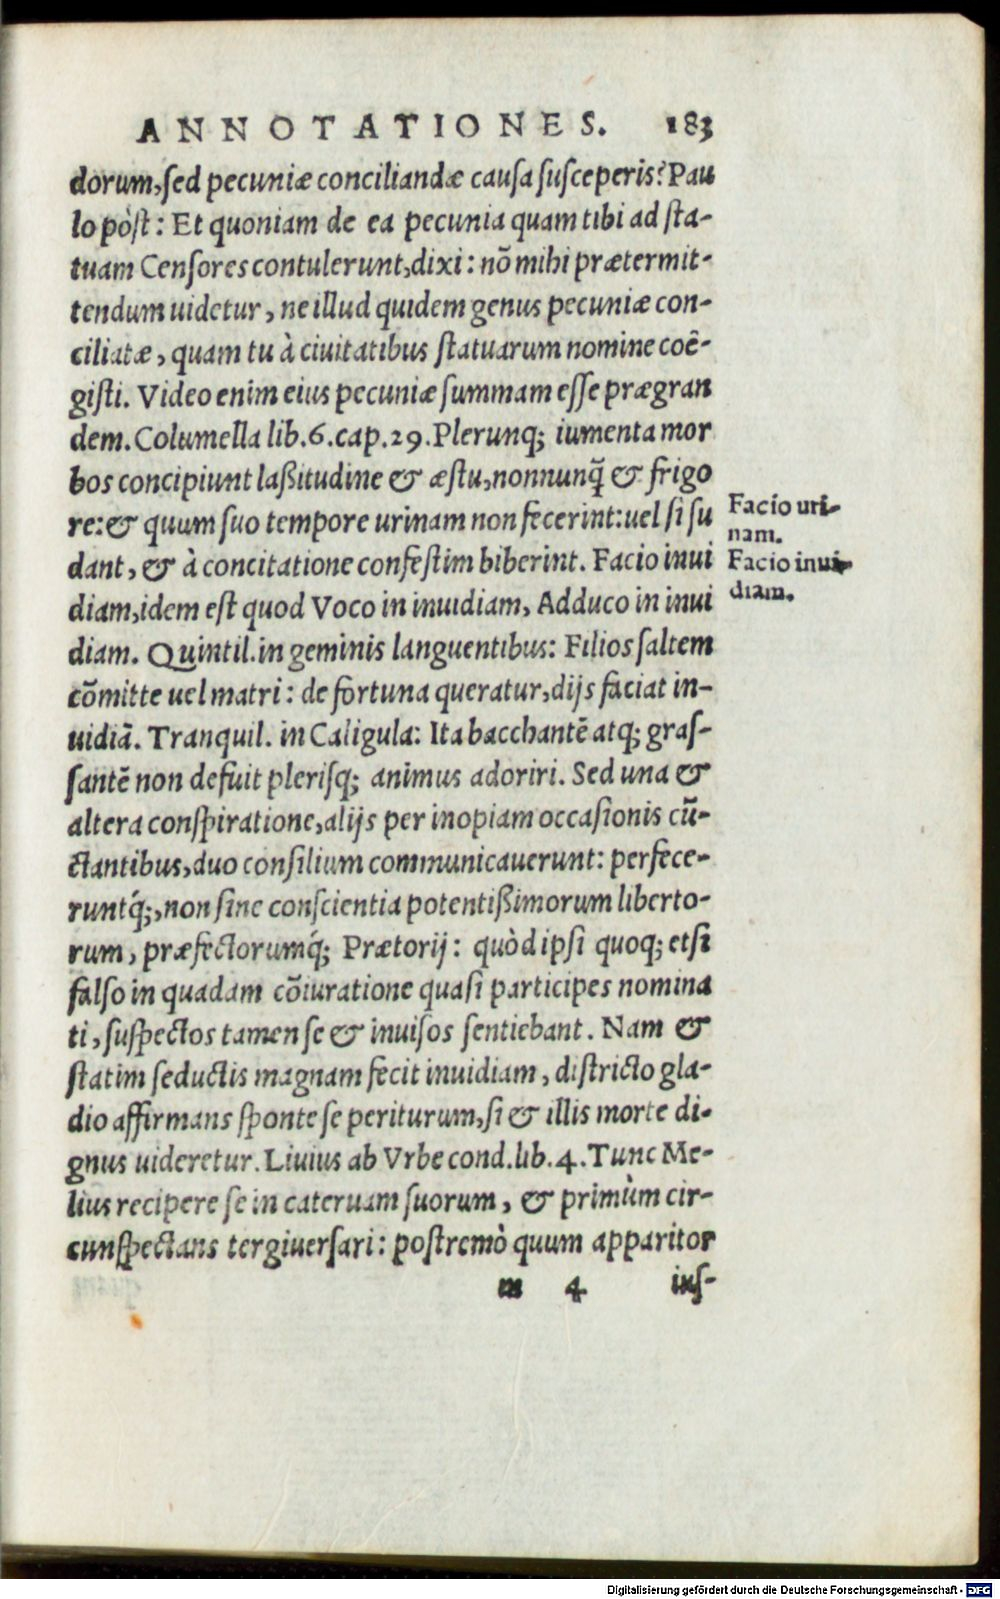 ANNOTATIONES. 183
dorum, sed pecuniæ conciliandæ causa susceperis? Pau
lo pòst: Et quoniam de ea pecunia quam tibi ad sta-
tuam Censores contulerunt, dixi: nõ mihi prætermit-
tendum uidetur, ne illud quidem genus pecuniæ con-
ciliatæ, quam tu à ciuitatibus statuarum nomine coë-
gisti. Video enim eius pecuniæ summam esse prægran
dem. Columella lib.6.cap.29. Plerunq; iumenta mor
bos concipiunt laßitudine & æstu, nonnunq̃ & frigo
re: & quum suo tempore urinam non fecerint: uel si su
dant, & à concitatione confestim biberint. Facio inui
diam, idem est quod Voco in inuidiam, Adduco in inui
diam. Quintil. in geminis languentibus: Filios saltem
cõmitte uel matri: de fortuna queratur, dijs faciat in-
uidiã. Tranquil. in Caligula: Ita bacchantẽ atq; gras-
santẽ non defuit plerisq; animus adoriri. Sed una &
altera conspiratione, alijs per inopiam occasionis cũ-
ctantibus, duo consilium communicauerunt: perfece-
runtq́;, non sine conscientia potentißimorum liberto-
rum, præfectorumq́; Prætorij: quòd ipsi quoq; etsi
falso in quadam cõiuratione quasi participes nomina
ti, suspectos tamen se & inuisos sentiebant. Nam &
statim seductis magnam fecit inuidiam, districto gla-
dio affirmans sponte se periturum, si & illis morte di-
gnus uideretur. Liuius ab Vrbe cond. lib. 4. Tunc Me-
lius recipere se in cateruam suorum, & primùm cir-
cunspectans tergiuersari: postremò quum apparitor
m 4 ius-
Facio uri-
nam.
Facio inui-
diam.
Digitalisierung gefördert durch die Deutsche Forschungsgemeinschaft - DFG